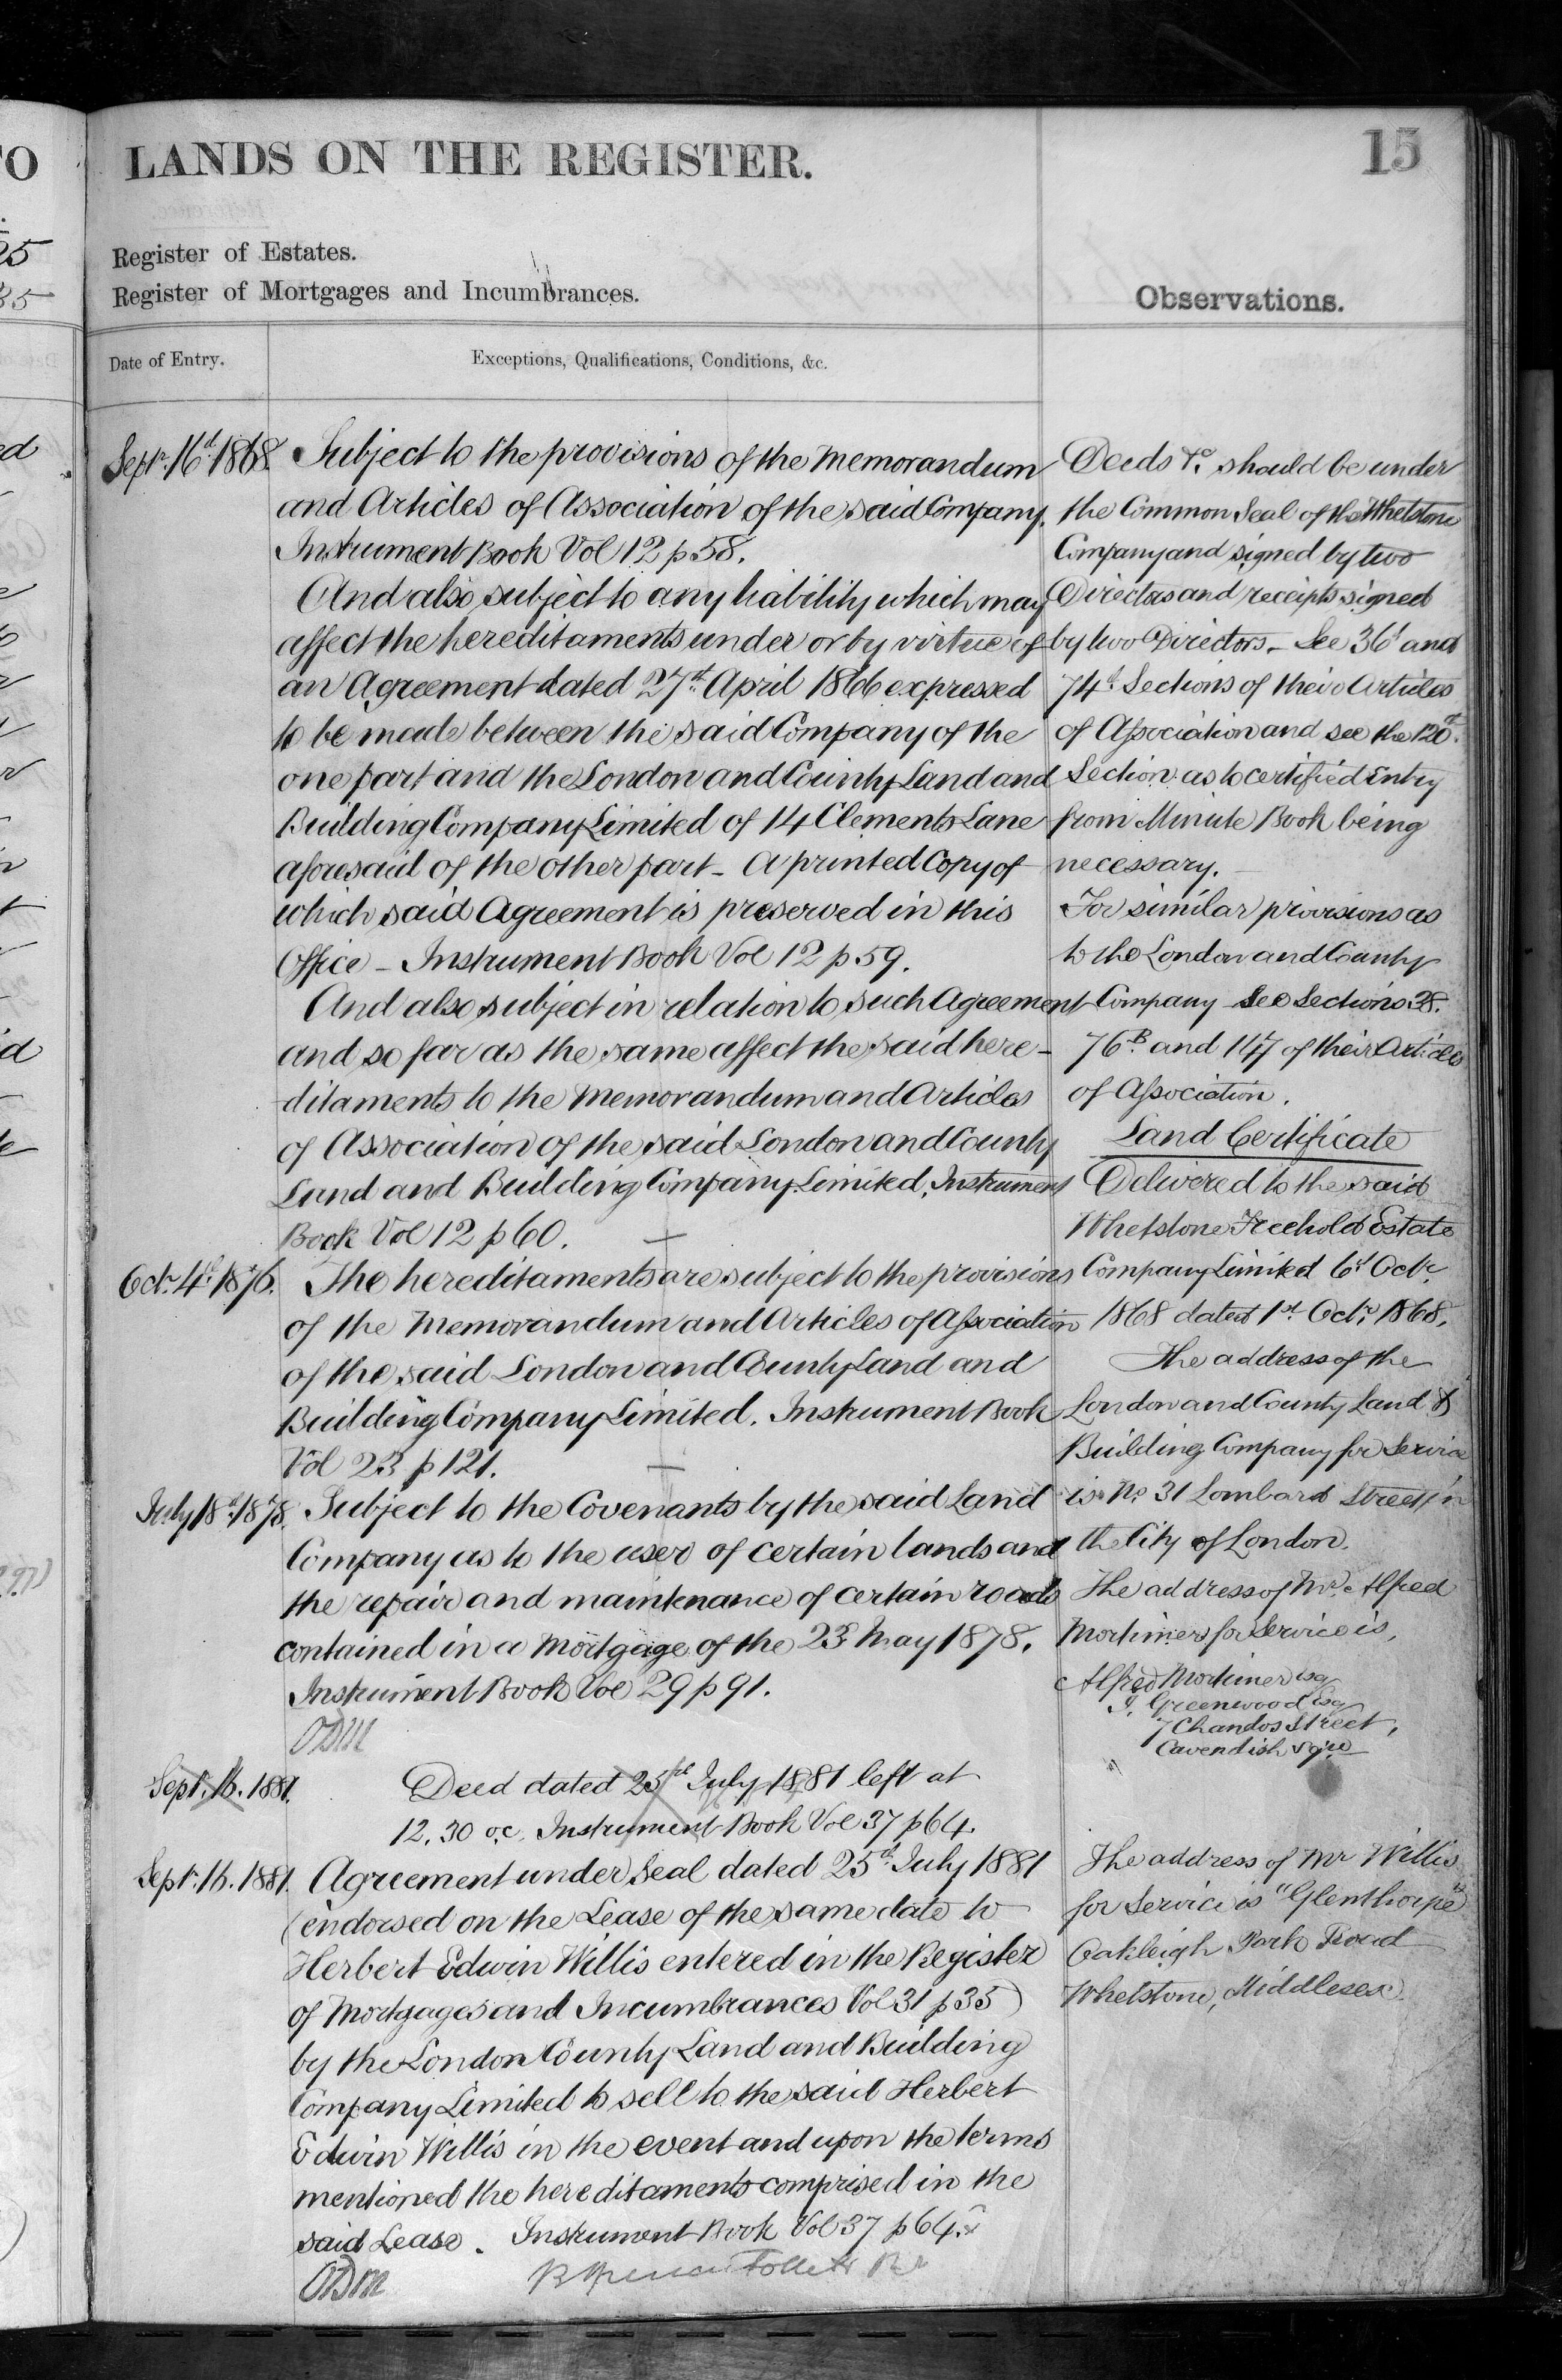 LANDS ON THE REGISTER.
15
Register of Estates.
Register of Mortgages and Incumbrances.
Observations.
Date of Entry.
Exceptions, Qualifications, Conditions, &c.
Septr. 16th 1868.
Subject to the provisions of the Memorandum
and Articles of Association of the said Company.
Instrument Book Vol 12 p 58.
And also subject to any liability which may
affect the hereditaments under or by virtue of
an Agreement dated 27th April 1866 expressed
to be made between the said Company of the
one part and the London and County Land and
Building Company Limited of 14 Clements Lane
aforesaid of the other part - A printed Copy of
which said Agreement is preserved in this
Office - Instrument Book Vol 12 p 59.
And also subject in relation to such Agreement
and so far as the same affect the said here-
ditaments to the Memorandum and Articles
of Association of the said London and County
Land and Building Company Limited, Instrument
Book Vol 12 p 60.
Octr. 4th 1876.
The hereditaments are subject to the provisions
of the Memorandum and Articles of Association
of the said London and County Land and
Building Company Limited. Instrument Book
Vol 23 p 121.
July 18th 1878.
Subject to the Covenants by the said Land
Company as to the user of certain lands and
the repair and maintenance of certain roads
contained in a Mortgage of the 23d May 1878.
Instrument Book Vol 29 p 91.
Sept. 16. 1881.
Deed dated 25th July 1881 left at
12.30 o.c. Instrument Book Vol 37 p 64.
Septr. 16. 1881.
Agreement under Seal dated 25th July 1881
(endorsed on the Lease of the same date to
Herbert Edwin Willis entered in the Register
of Mortgages and Incumbrances Vol 31 p 35)
by the London County Land and Building
Company Limited to sell to the said Herbert
Edwin Willis in the event and upon the terms
mentioned the hereditaments comprised in the
said Lease. Instrument Book Vol 37 p 64.
Deeds &c. should be under
the Common Seal of the Whetstone
Company and signed by two
Directors and receipts signed
by two Directors. - See 36th and
74th Sections of their Articles
of Association and see the 120th
Section as to certified Entry
from Minute Book being
necessary.
For similar provisions as
to the London and County
Company See Sections 38.
76B and 117 of their Articles
of Association.
Land Certificate
Delivered to the said
Whetstone Freehold Estate
Company Limited 6th Octr.
1868 dated 1st Octr. 1868.
The address of the
London and County Land &
Building Company for Service
is No. 31 Lombard Street in
the City of London.
The address of Mr. Alfred
Mortimer for Service is,
Alfred Mortimer Esq
Greenwood Esq
7 Chandos Street,
Cavendish Sqre
The address of Mr Willis
for Service is "Glenthorpe"
Oakleigh Park Road
Whetstone, Middlesex.